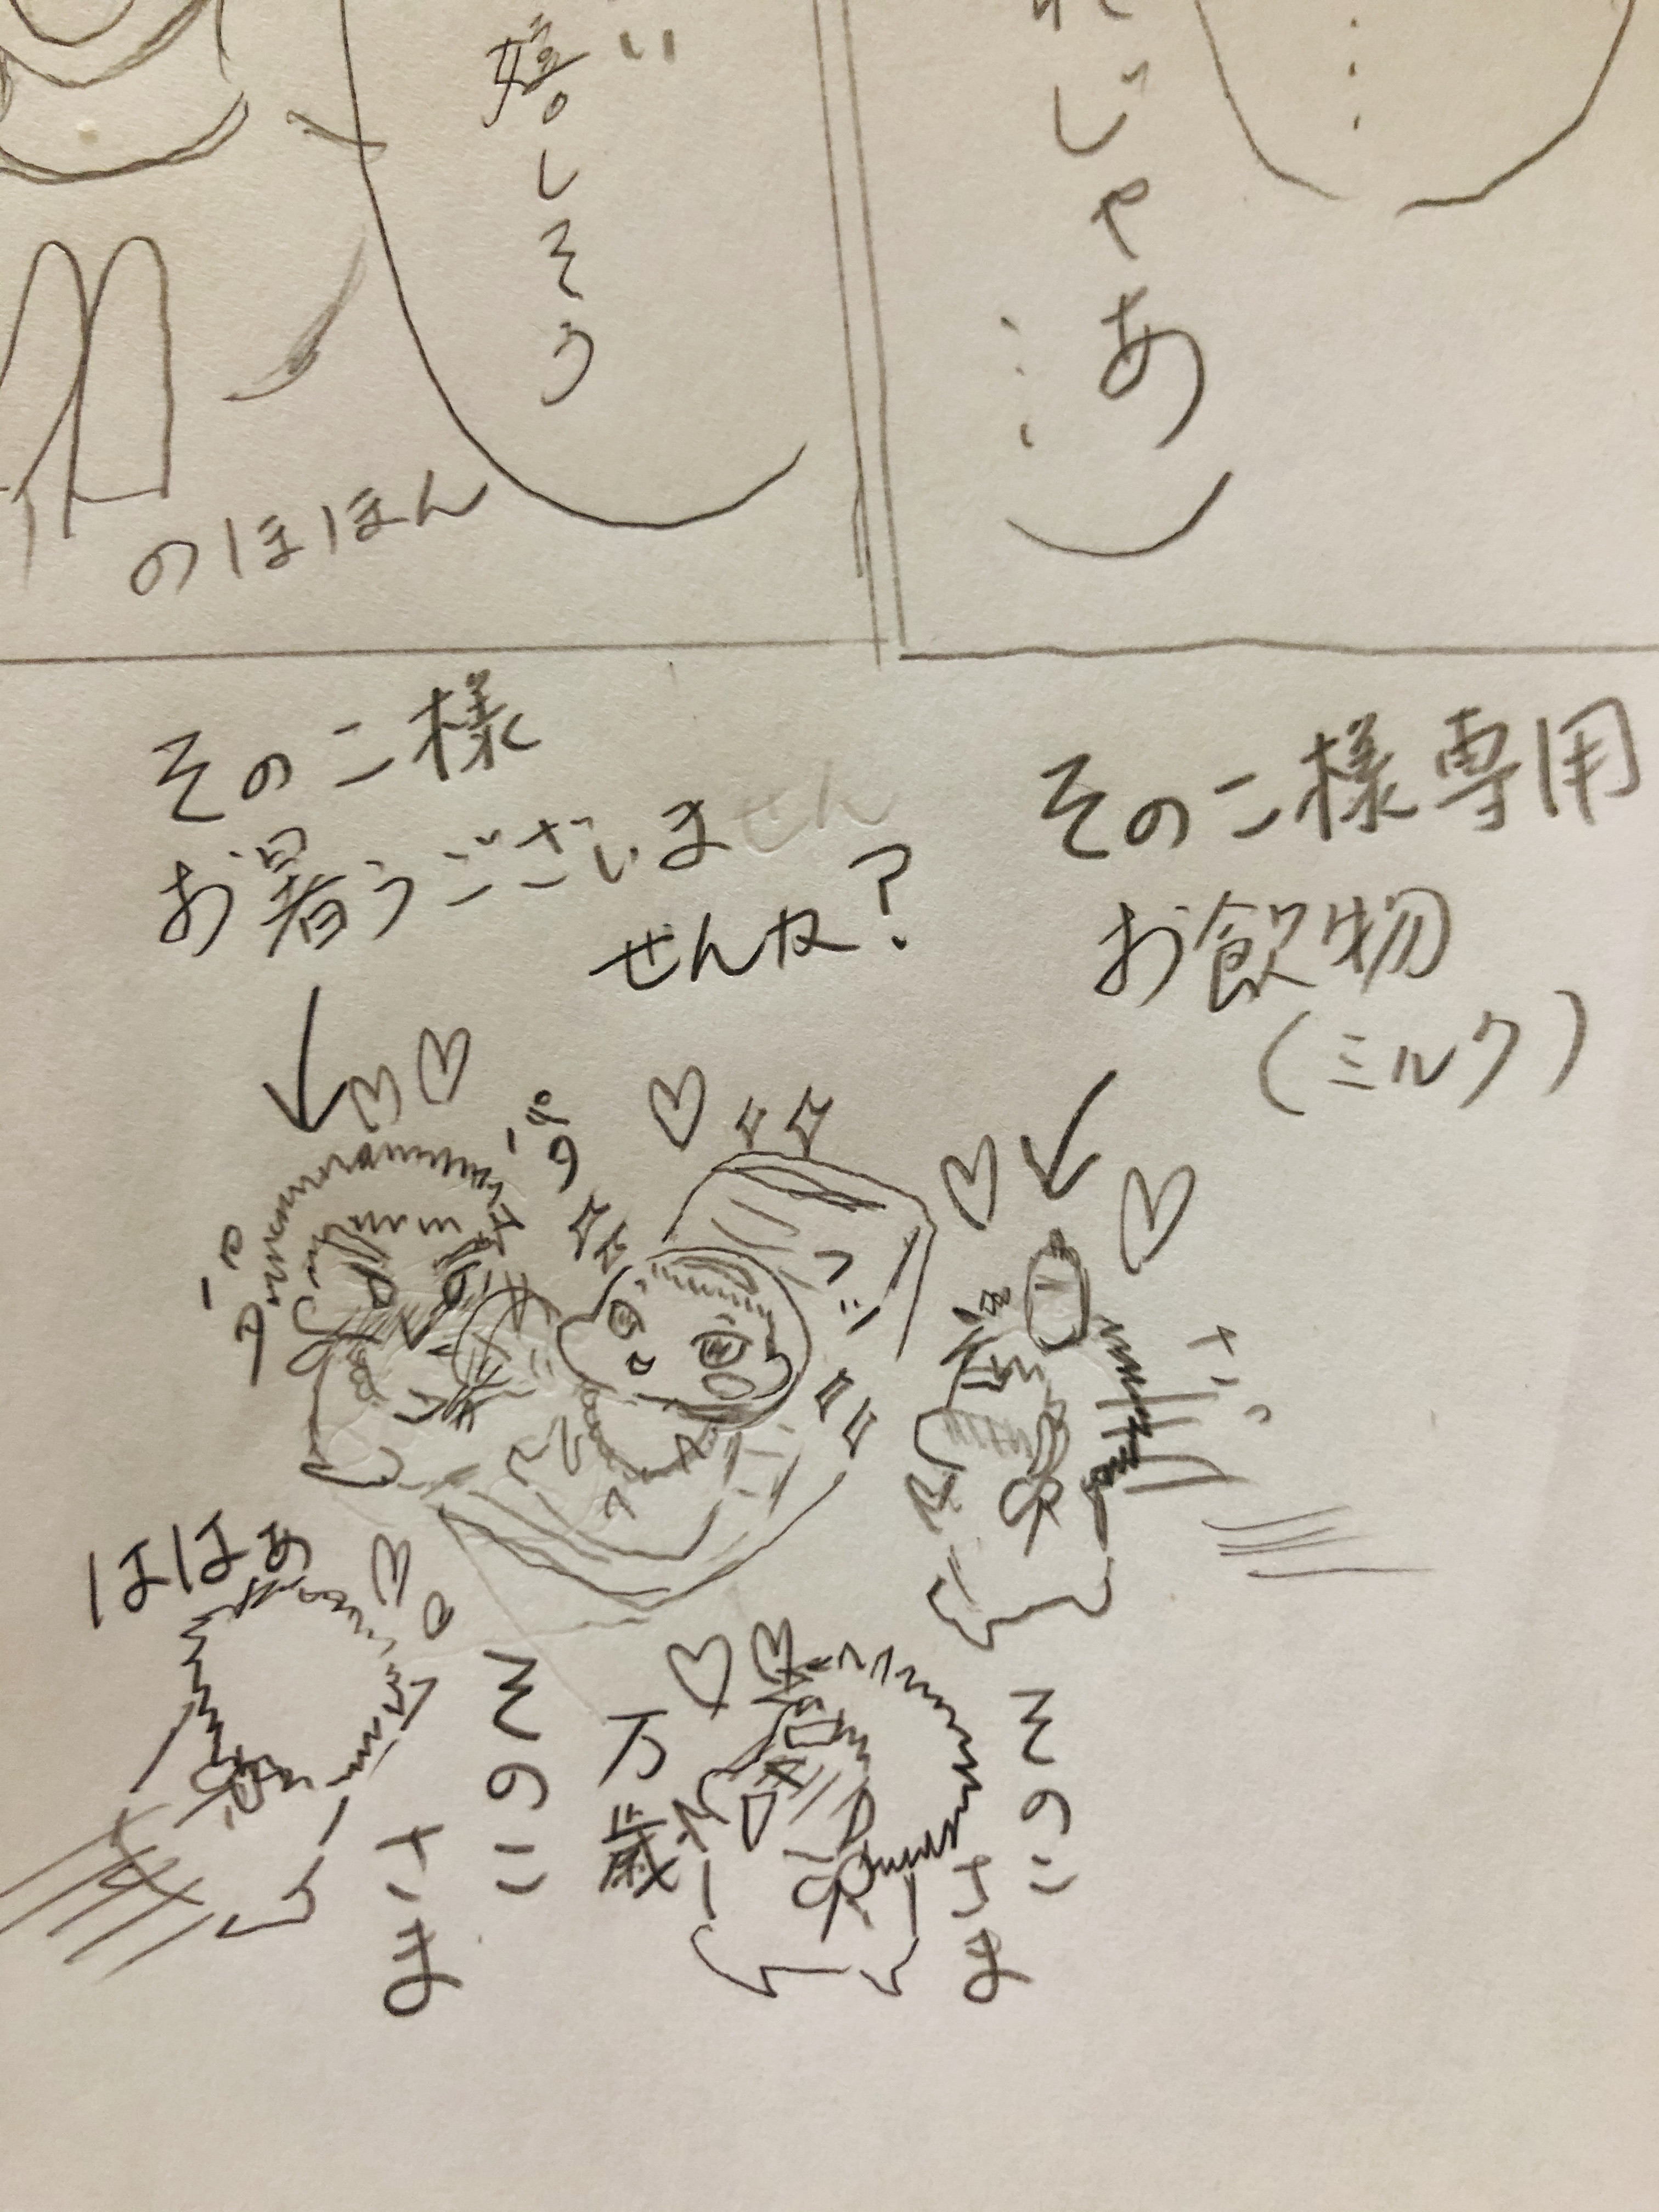 じゃあ
……
嬉しそう
のほほん
そのこ様専用
お飲物
(ミルク)
そのこ様
お暑うございませ
せんか?
パタ
パタ
サッ
ほほぁ
そのこ
さま
万歳
そのこ
さま